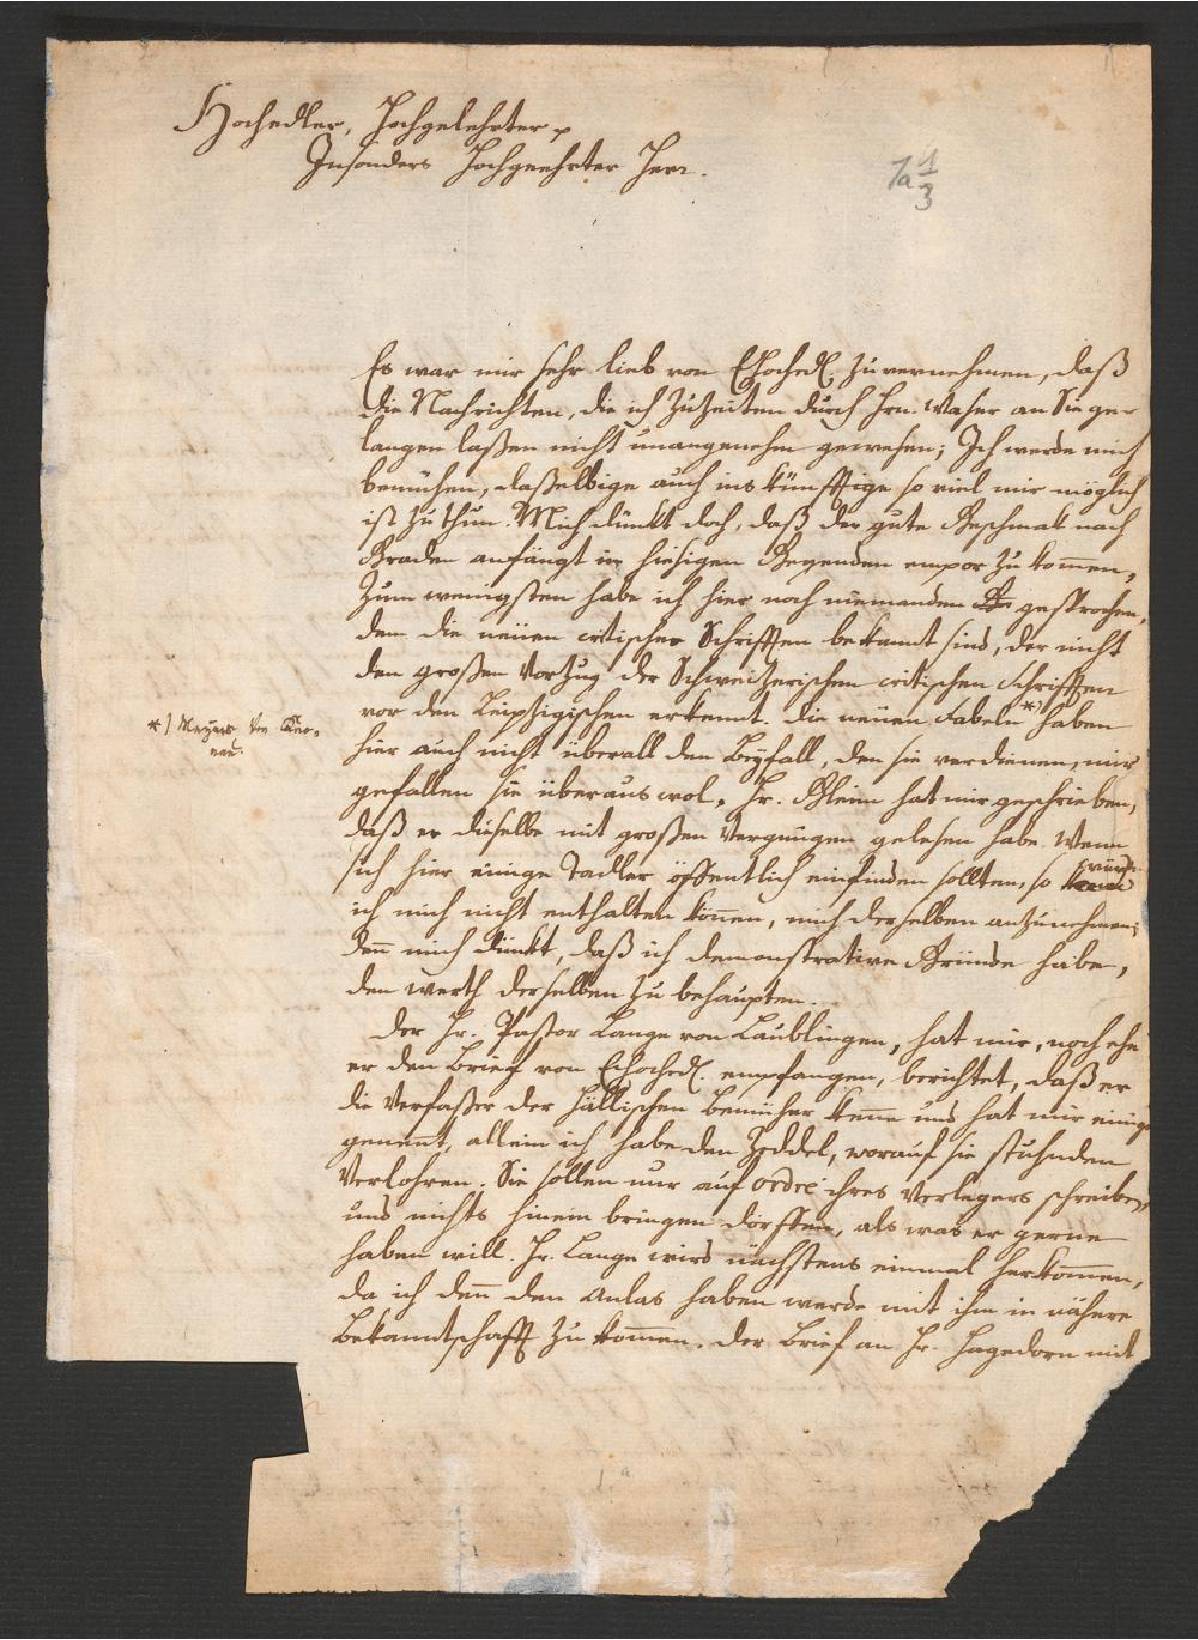 Hochedler, Hochgelehrter p
Insonders Hochgeehrter Herr.
7a 1/3
Es war mir sehr lieb von EHochedl. zu vernehmen, daß
die Nachrichten, die ich zuzeiten durch Hrn. Waser an Sie ge-
langen laßen nicht unangenehm gewesen; Ich werde mich
bemühen, daßelbige auch ins künfftige so viel mir möglich
ist zu thun. Mich dünkt doch, daß der gute Geschmak nach
Graden anfängt in hiesigen Gegenden empor zu kom̅en,
zum wenigsten habe ich hier noch niemanden gesprochen,
dem die neüen critischen Schrifften bekannt sind, der nicht
den großen Vorzug der Schweitzerischen critischen Schrifften
vor den Leipzigischen erkennt. Die neüen Fabeln *) haben
*) Meyers von Knonau.
hier auch nicht überall den Beyfall, den sie verdienen, mir
gefallen sie überaus wol, Hr. Gleim hat mir geschrieben,
daß er dieselbe mit großen Vergnügen gelesen habe. Wenn
sich hier einige Tadler öffentlich einfinden sollten, so würde
ich mich nicht enthalten kön̅en, mich derselben anzunehmen;
den̅ mich dünkt, daß ich demonstrative Gründe habe,
den werth derselben zu behaupten.
Der Hr. Pastor Lange von Laublingen, hat mir, noch ehe
er den Brief von EHochedl. empfangen, berichtet, daß er
die Verfaßer der Hällischen Bemüher ken̅e und hat mir einige
genen̅t, allein ich habe den Zeddel, worauf sie stuhnden
Verlohren. Sie sollen nur auf ordre ihres Verlegers schreiben,
und nichts hinein bringen dörffen, als was er gerne
haben will. Hr. Lange wird nächstens einmal herkom̅en,
da ich den̅ den Anlas haben werde mit ihm in nähere
Bekanntschafft zu kom̅en. Der Brief an Hr. Hagedorn mit